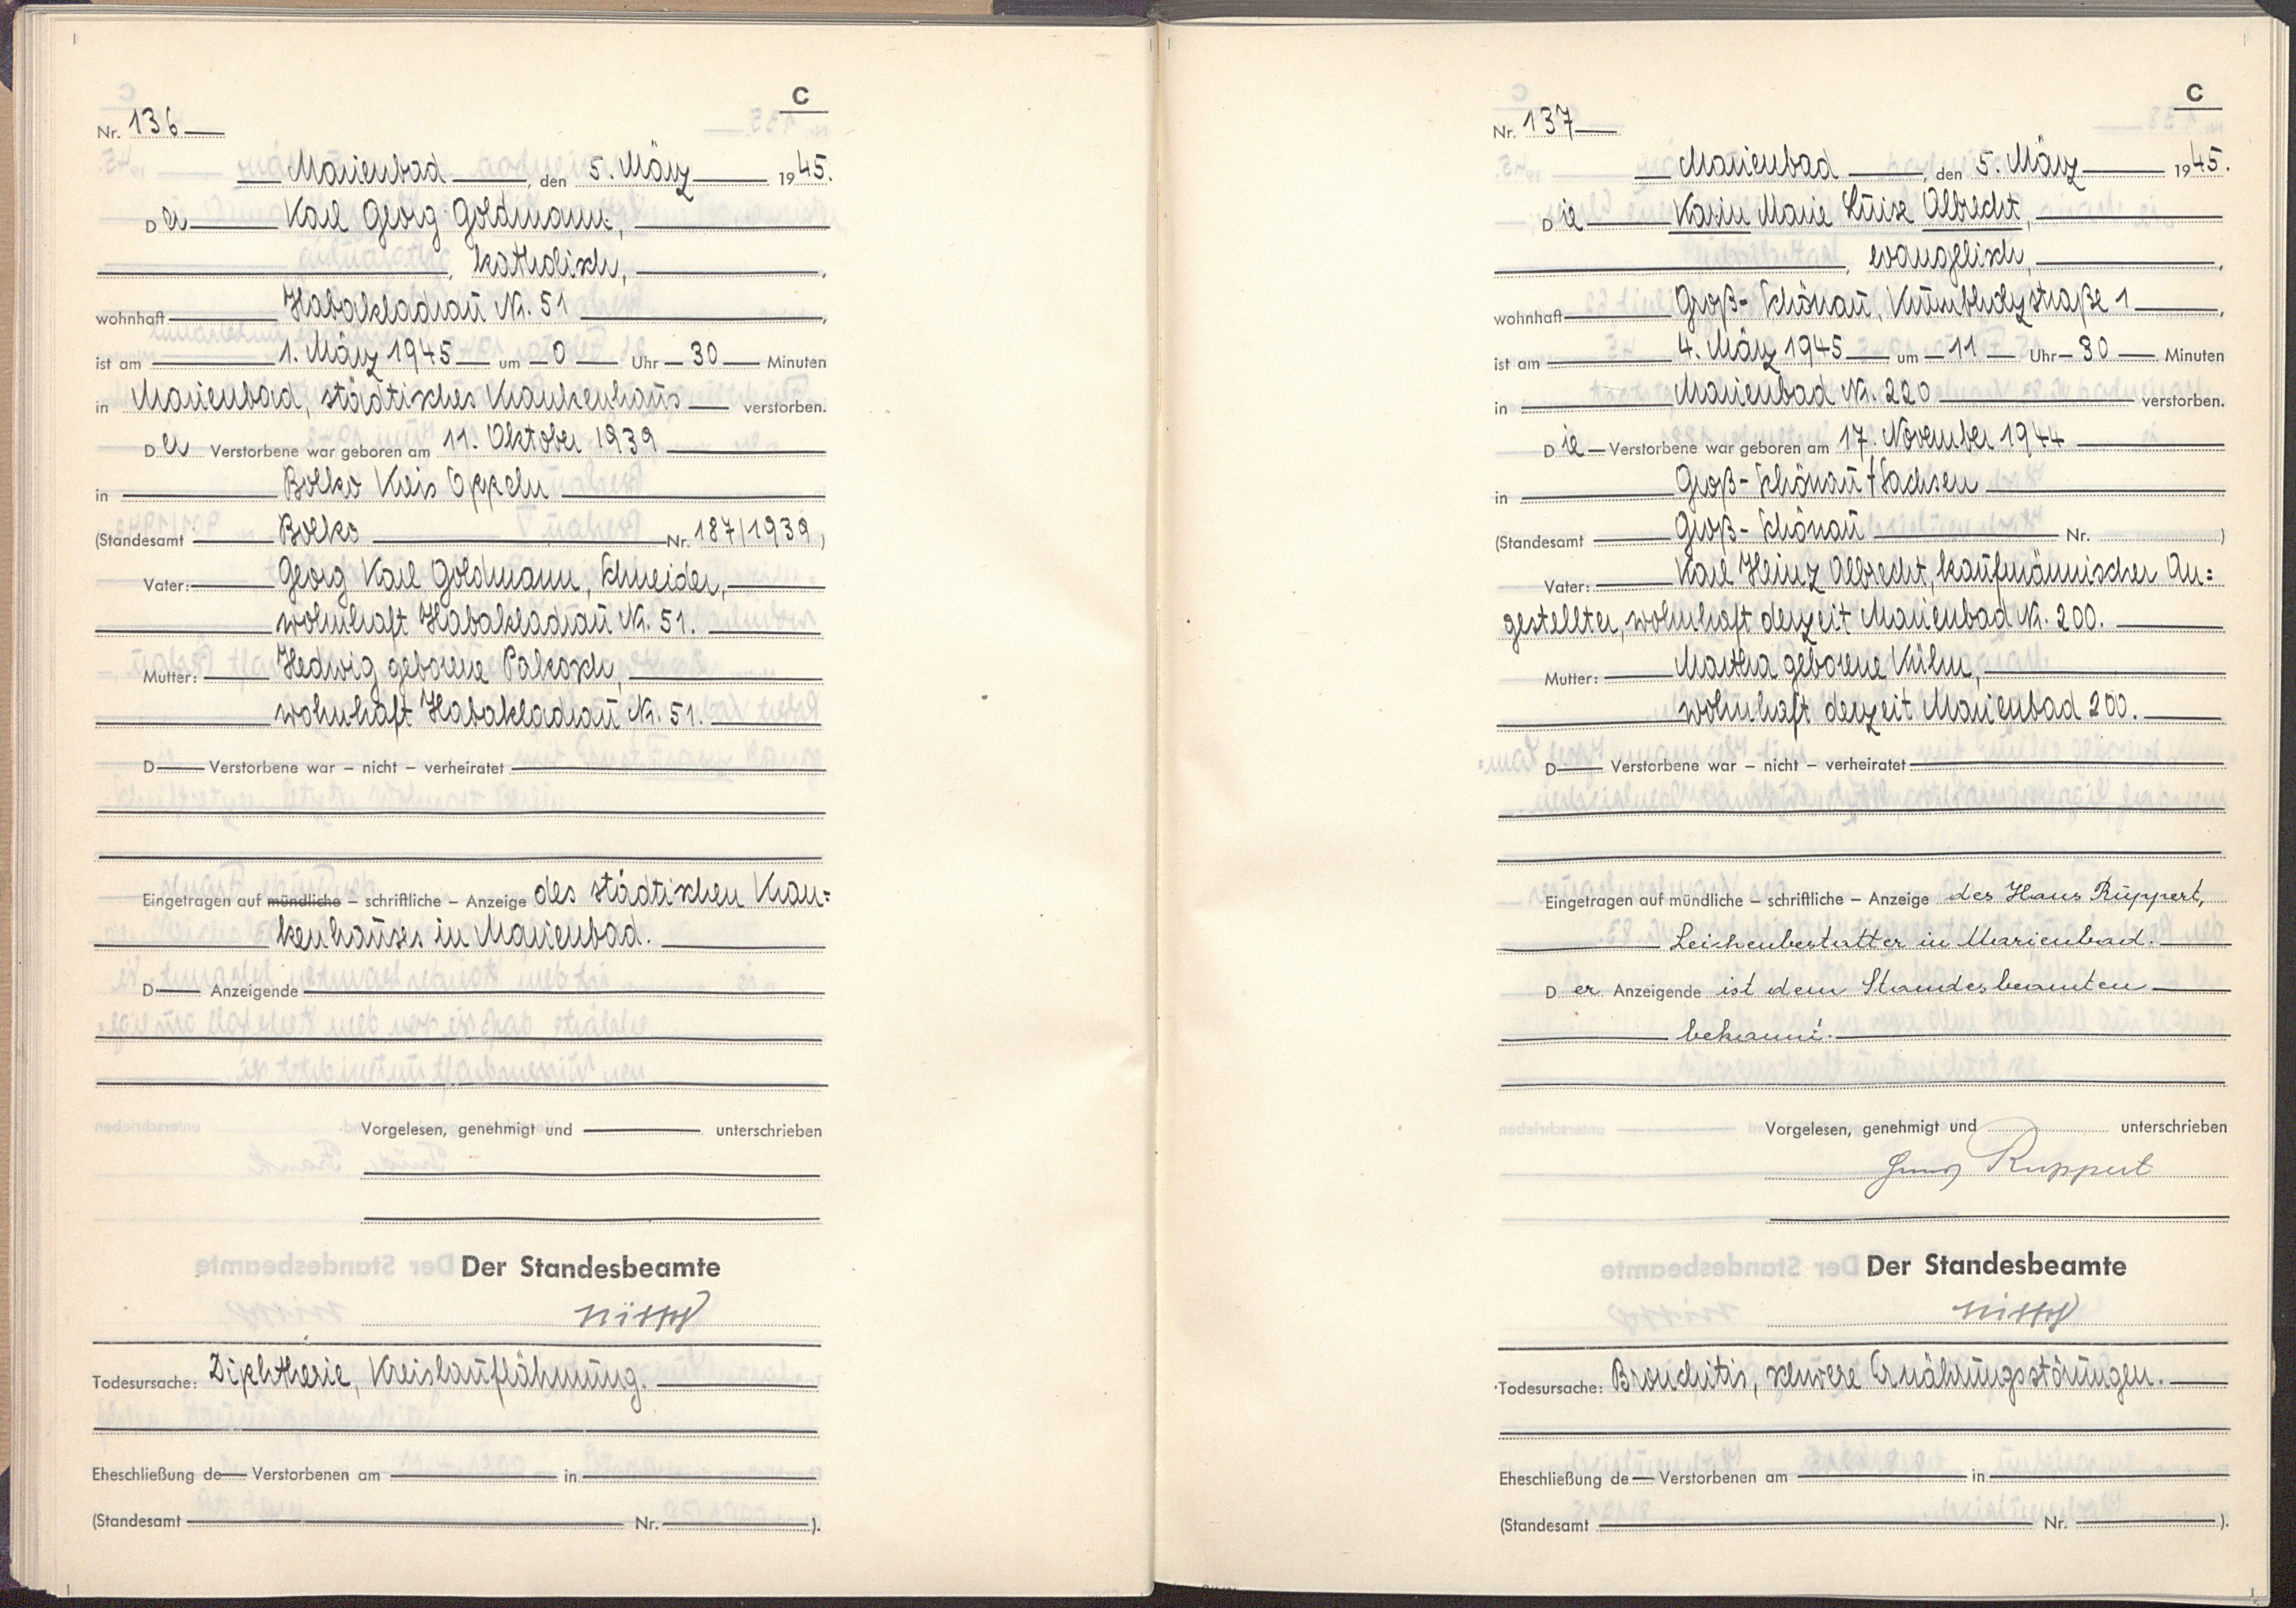 C
Nr. 136
Marienbad, den 5. März 1945.
Der Karl Georg Goldmann,
, katholisch,
wohnhaft Habakladrau Nr. 51,
ist am 1. März 1945 um 0 Uhr 30 Minuten
in Marienbad, städtisches Krankenhaus verstorben.
Der Verstorbene war geboren am 11. Oktober 1939
in Bolko Kreis Oppeln
(Standesamt Bolko Nr. 187/1939)
Vater: Georg Karl Goldmann, Schneider,
wohnhaft Habakladrau Nr. 51.
Mutter: Hedwig geborene Palkosch,
wohnhaft Habakladrau Nr. 51.
D Verstorbene war – nicht – verheiratet
Eingetragen auf mündliche – schriftliche – Anzeige des städtischen Kran=
kenhauses in Marienbad.
D Anzeigende
Vorgelesen, genehmigt und unterschrieben
Der Standesbeamte
Todesursache: Diphtherie, Kreislauflähmung.
Eheschließung de Verstorbenen am in
(Standesamt Nr. ).
C
Nr. 137
Marienbad, den 5. März 1945.
Die Karin Marie Luise Albrecht,
, evangelisch,
wohnhaft Groß-Schönau, Krumbholzstraße 1,
ist am 4. März 1945 um 11 Uhr 30 Minuten
in Marienbad Nr. 220 verstorben.
Die Verstorbene war geboren am 17. November 1944
in Groß-Schönau / Sachsen
(Standesamt Groß-Schönau Nr. )
Vater: Karl Heinz Albrecht, kaufmännischer An=
gestellter, wohnhaft derzeit Marienbad Nr. 200.
Mutter: Martha geborene Kühn,
wohnhaft derzeit Marienbad 200.
D Verstorbene war – nicht – verheiratet
Eingetragen auf mündliche – schriftliche – Anzeige des Hans Ruppert,
Leichenbestatter in Marienbad.
Der Anzeigende ist dem Standesbeamten
bekannt.
Vorgelesen, genehmigt und unterschrieben
Hans Ruppert
Der Standesbeamte
Todesursache: Bronchitis, schwere Ernährungsstörungen.
Eheschließung de Verstorbenen am in
(Standesamt Nr. ).